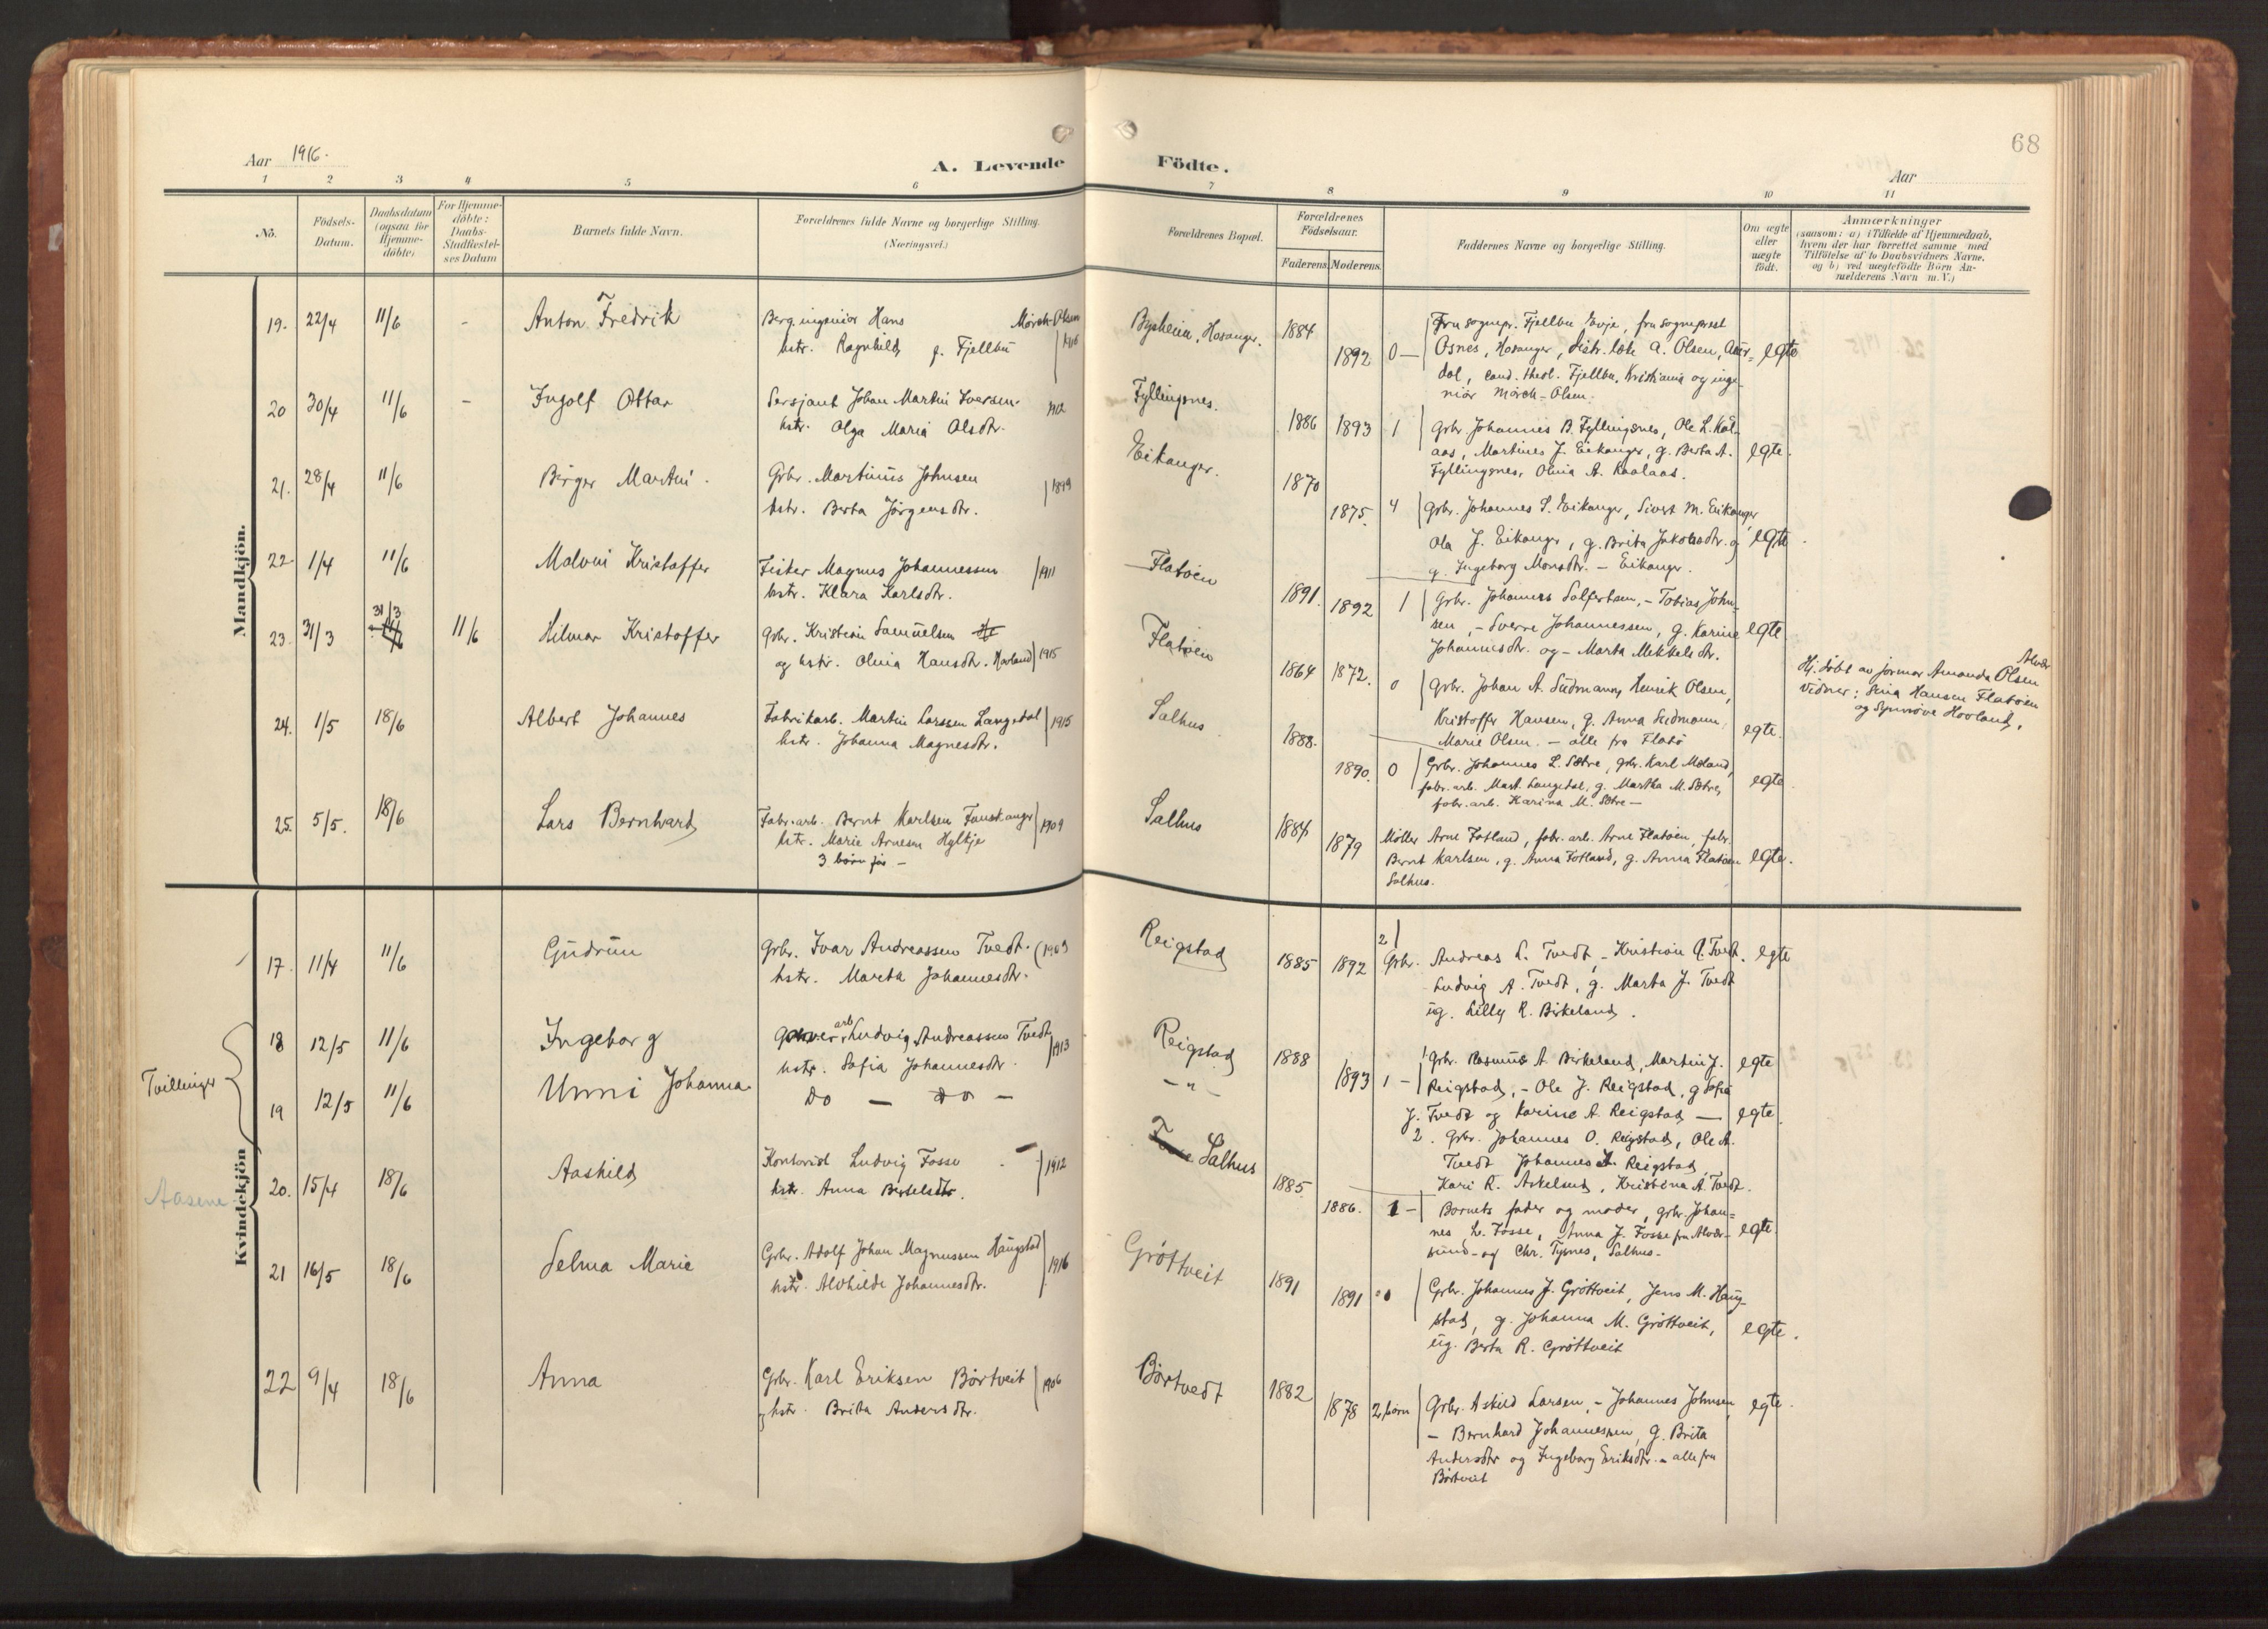 68
Aar 1916.
A. Levende Födte.
Aar
1 2 3 4 5 6 7 8 9 10 11
No.
Födsels-
Datum.
Daabsdatum
(ogsaa for
Hjemme-
döbte)
For Hjemme-
döbte:
Daabs-
Stadfæstel-
ses Datum
Barnets fulde Navn.
Forældrenes fulde Navne og borgerlige Stilling.
(Næringsvei.)
Forældrenes Bopæl.
Forældrenes
Födselsaar.
Faderens. Moderens.
Faddernes Navne og borgerlige Stilling.
Om ægte
eller
uægte
födt.
Anmærkninger
(saasom: a) i Tilfælde af Hjemmedaab,
hvem der har forrettet samme med
Tilföielse af to Daabsvidners Navne,
og b) ved uægtefödte Börn An-
melderens Navn m. V.)
Mandkjön.
19. 22/4 11/6 - Anton Fredrik
Berg.ingeniør Hans Mörch-Olsen
hstr. Ragnhild f. Fjellbu 1916
Hosanger. 1884 1892 0
Fru sognepr. Fjellbu Evje, fru sogneprest
Osnes, Hosanger, distr. læke A. Olsen, Aur-
dal, cand. theol. Fjellbu, Kristiania og inge-
niör Mörch-Olsen.
egte
20 30/4 11/6 - Ingolf Ottar
Sersjant Johan Martin Iversen. 1912
hstr. Olga Maria Olsdtr.
Fyllingsnes. 1886 1893 1
Grbr. Johannes B. Fyllingsnes, Ole L. Kål-
aas, Martines J. Eikanger, g. Berta A.
Fyllingsnes, Olina A. Kaalaas.
egte.
21. 28/4 11/6 Birger Martin.
Grbr. Martinus Johnsen 1899
hstr. Berta Jörgensdtr.
Eikanger. 1870 1875. 4
Grbr. Johannes S. Eikanger, Sivert M. Eikanger,
Ola J. Eikanger, g. Brita Jakobsdtr. og
g. Ingeborg Monsdtr. - Eikanger.
egte.
22. 1/4 11/6 Malvin Kristoffer
Fisker Magnus Johannessen 1911
hstr. Klara Karlsdtr.
Flatöen 1891. 1892 1
Grbr. Johannes, - Tobias John-
sen, - Sverre Johannessen, g. Karine
Johannesdtr. og - Marta Mikkelsdtr.
egte
23. 31/3 31/3 11/6 Hilmar Kristoffer
Grbr. Kristian Samuelsen
og hstr. Olina Hansdtr. Hovland 1915
Flatöen 1864 1872. 0
Grbr. Johan A. Sudmann, Henrik Olsen,
Kristoffer Hansen, g. Anna Sudmann,
Marie Olsen. - alle fra Flatö
egte.
Hj. döbt av jormor Amanda Olsen Alvær
Vidner: Sina Hansen Flatöen
og Synnöve Hovland.
24. 1/5 18/6 Albert Johannes
Fabrikarb. Martin Larssen Langedal 1915
hstr. Johanna Magnesdtr.
Salhus 1888. 1890. 0
Grbr. Johannes L. Sætre, grbr. Karl Mæland,
fabr. arb. Mart. Langedal, g. Martha M. Sætre,
fabr. arb. Karina M. Sætre -
egte.
25. 5/5. 18/6 Lars Bernhard
Fabr. arb. Bernt Karlsen 1909
hstr. Marie Arnesen Hylkje
3 børn før -
Salhus 1884 1879
Møller Arne Totland, fabr. arb. Arne Flatöen, fabr.
Bernt Karlsen, g. Anna Totland, g. Anna Flatöen
Salhus.
egte.
Kvindekjön
17. 11/4 11/6 Gudrun
Grbr. Ivar Andreassen Tvedt. 1903
hstr. Marta Johannesdtr.
Reigstad 1885 1892 2
Grbr. Andreas L. Tvedt, - Kristian A. Tvedt.
Ludvig A. Tvedt, g. Marta J. Tvedt
ug. Lilly R. Birkeland.
egte
Tvillinger
18 12/5 11/6 Ingeborg
arb. Ludvig Andreassen Tvedt 1913
hstr. Sofia Johannesdtr.
Reigstad 1888 1893 1 -
1. Grbr. Rasmus A. Birkeland, Martin J.
Reigstad, - Ole J. Reigstad, g Sofia
J. Tvedt og Karine A. Reigstad -
egte
19 12/5 11/6 Unni Johanna
Do - Do -
- " -
2. Grbr. Johannes O. Reigstad, Ole A.
Tvedt Johannes Reigstad,
Kari R. Askeland, Kristina A. Tvedt.
egte.
Aasene
20. 15/4 18/6 Aashild
Kontorist Ludvig Fosse 1912
hstr. Anna Bertelsdtr.
Salhus 1885 1886. 1 -
Barnets fader og moder, grbr. Johan-
nes L. Fosse, Anna J. Fosse fra Alvær-
sund - og Chr. Tysnes, Salhus -
egte.
21 16/5 18/6 Selma Marie
Grbr. Adolf Johan Magnussen Haugstad 1916
hstr. Alvhilde Johannesdtr.
Gröttveit 1891 1891 0
Grbr. Johannes J. Gröttveit, Jens M. Haug-
stad, g. Johanna M. Gröttveit,
ug. Berta R. Gröttveit
egte.
22 9/4 18/6 Anna
Grbr. Karl Eriksen Börtveit 1906
og hstr. Brita Andersdtr.
Börtvedt 1882 1878 2 börn
Grbr. Askild Larsen, - Johannes Johnsen,
- Bernhard Johannessen, g. Brita
Andersdtr og Ingeborg Eriksdtr. - alle fra
Börtveit
egte.